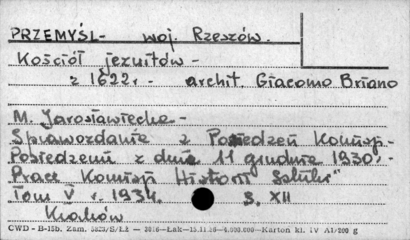 PRZEMYŚL- woj. Rzeszów.
Kościół jezuitów -
z 1622r - archit. Giacomo Briano
M. Jarosławiecka -
Sprawozdanie z Posiedzeń Komisji -
Posiedzenie z dnia 11 grudnia 1930. -
Prace Komisji Historii Sztuki"
Tom V r. 1934. S. XII
Kraków
CWD - B-15b. Zam. 5823/S/Lz — 3076—Łak—15.11.56—4.000.000—Karton kl. IV A1/200 g